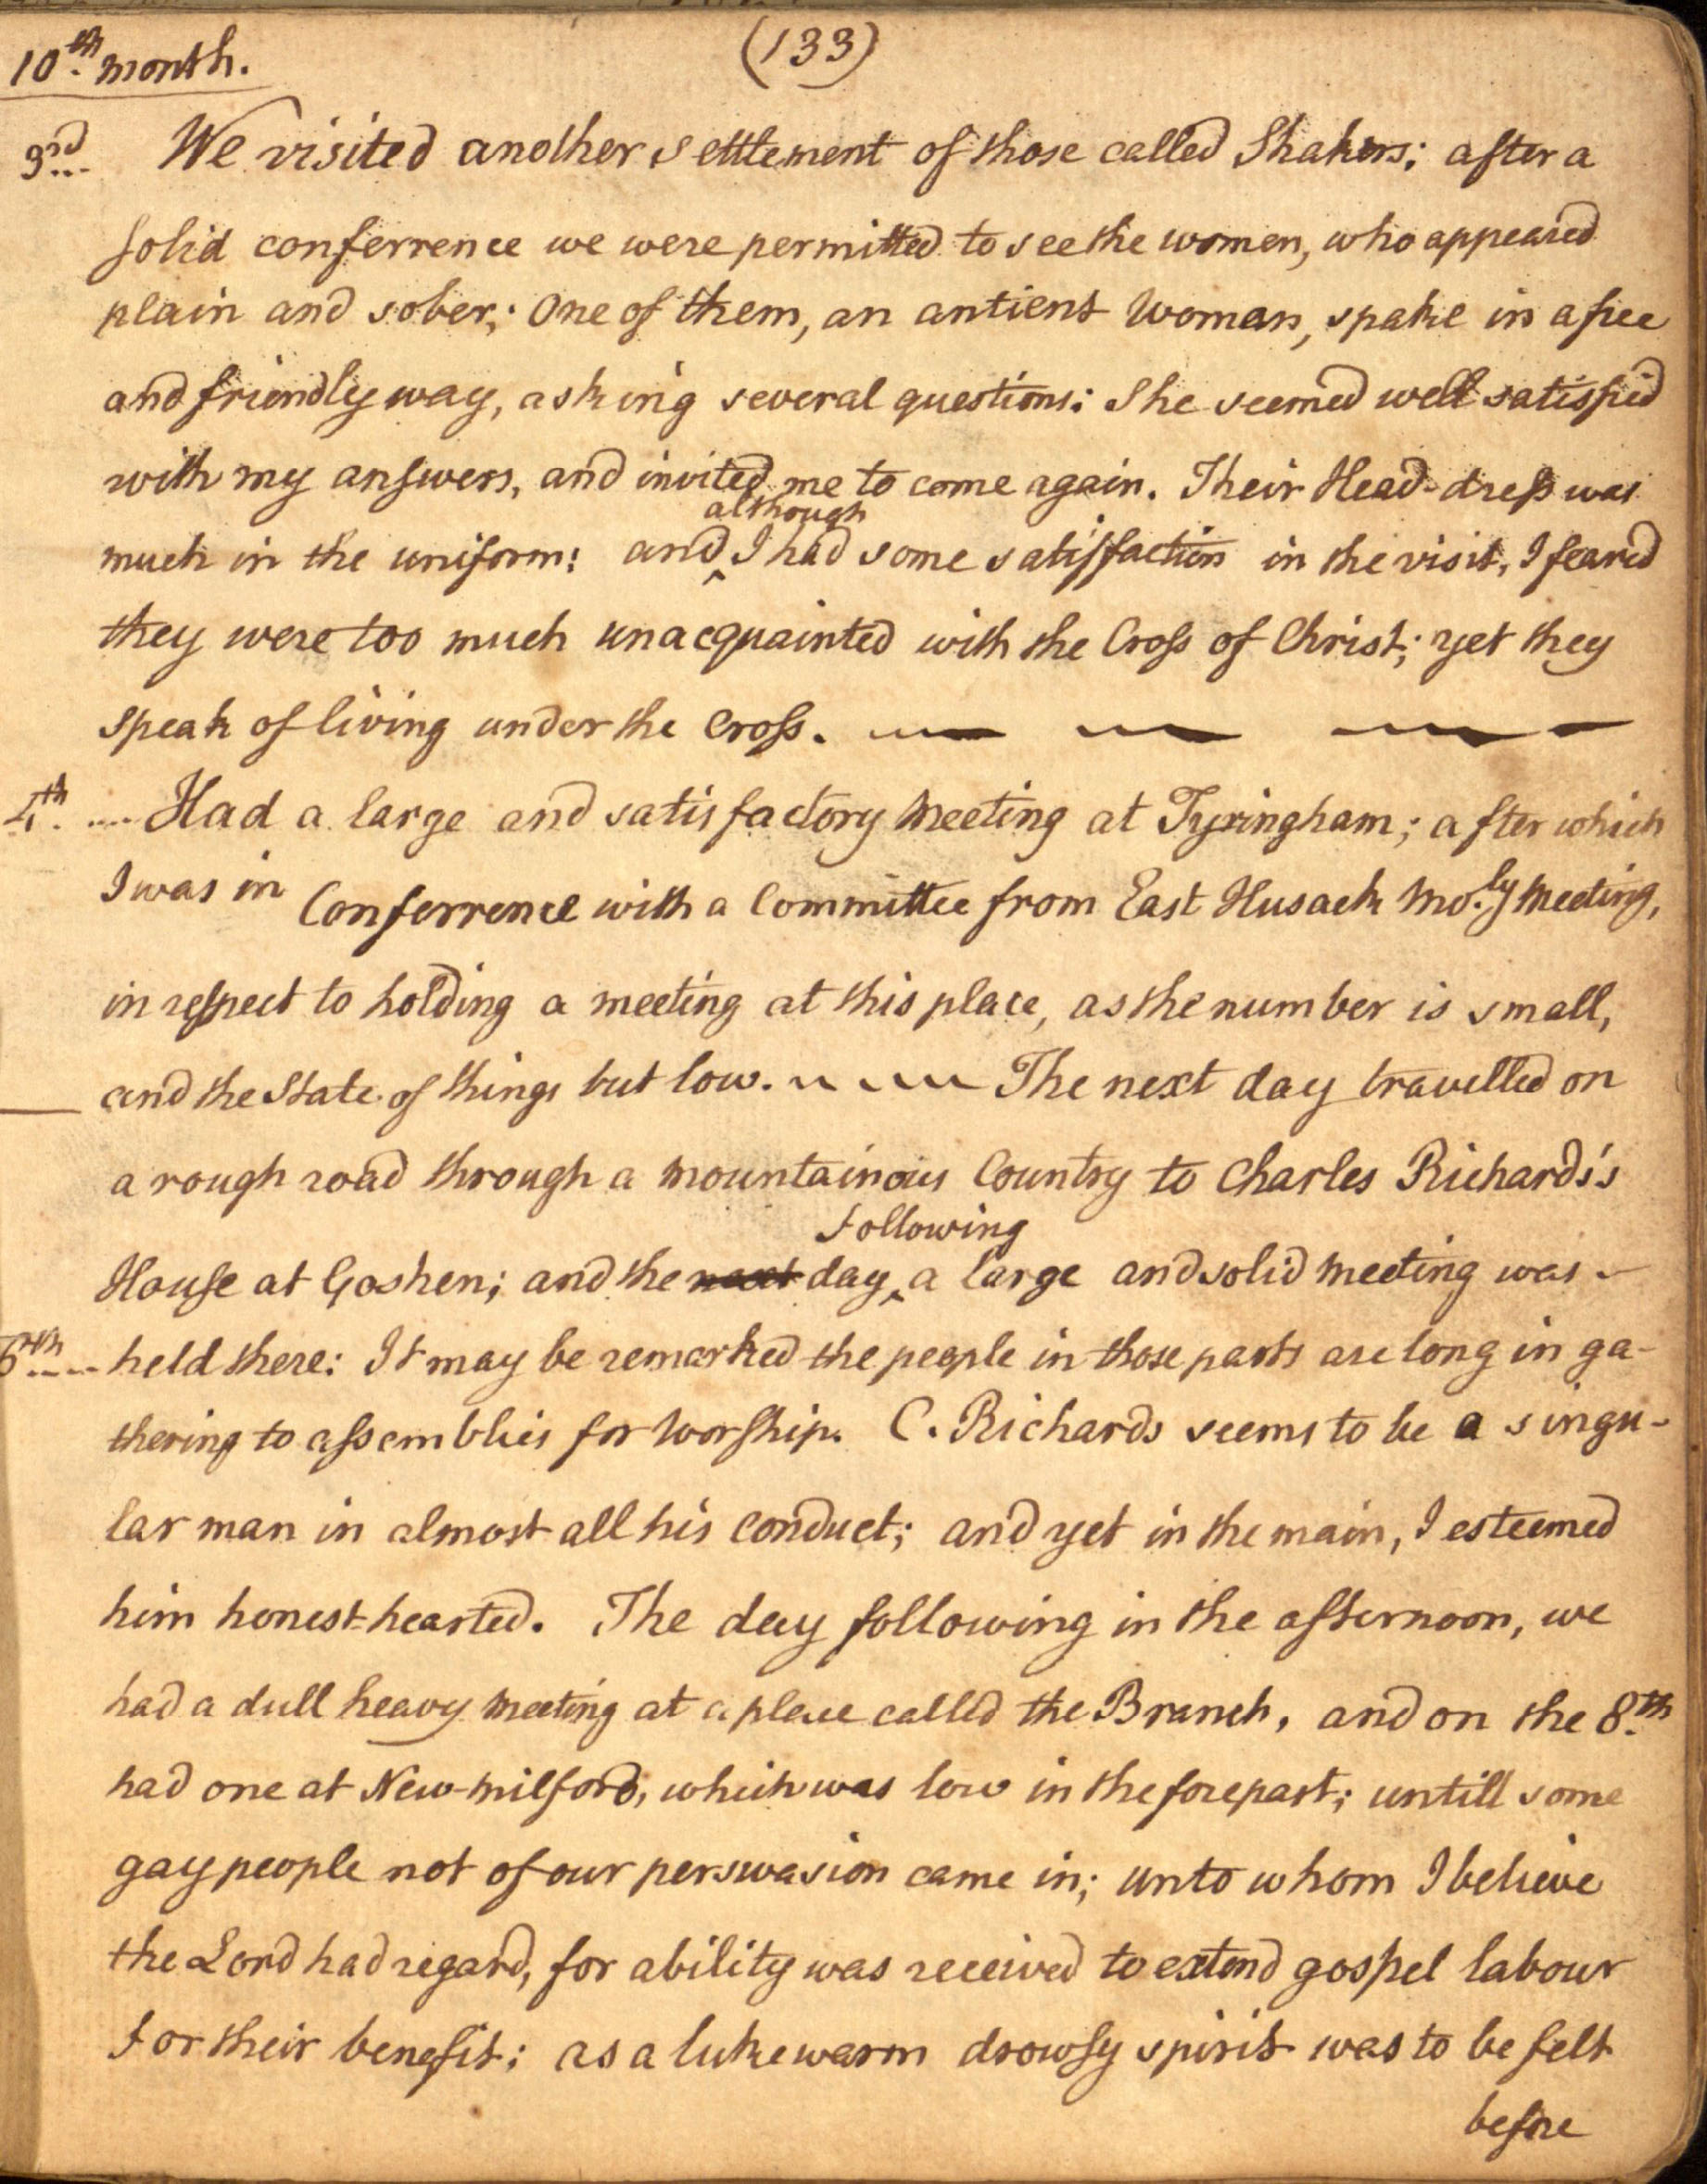 10th month.
(133)
3rd We visited another settlement of those called Shakers; after a
solid conferrence we were permitted to see the women, who appeared
plain and sober; One of them, an antient Woman, spake in a free
and friendly way, asking several questions: She seemed well satisfied
with my answers, and invited me to come again. Their Head-dress was
although
much in the uniform: and ‸ I had some satisfaction in the visit, I feared
they were too much unacquainted with the Cross of Christ; yet they
speak of living under the Cross.
4th Had a large and satisfactory Meeting at Tyringham; after which
I was in Conferrence with a Committee from East Husack Mo.ly Meeting,
in respect to holding a meeting at this place, as the number is small,
and the State of things but low. The next day travelled on
a rough road through a Mountainous Country to Charles Richards's
following
House at Goshen; and the next day ‸ a large and solid Meeting was
6th held there: It may be remarked the people in those parts are long in ga-
thering to assemblies for Worship. C. Richards seems to be a singu-
lar man in almost all his Conduct; and yet in the main, I esteemed
him honest-hearted. The day following in the afternoon, we
had a dull heavy Meeting at a place called the Branch, and on the 8th
had one at New-milford, which was low in the forepart; untill some
gay people not of our perswasion came in; unto whom I believe
the Lord had regard, for ability was received to extend gospel labour
for their benefit; as a lukewarm drowsy spirit was to be felt
before